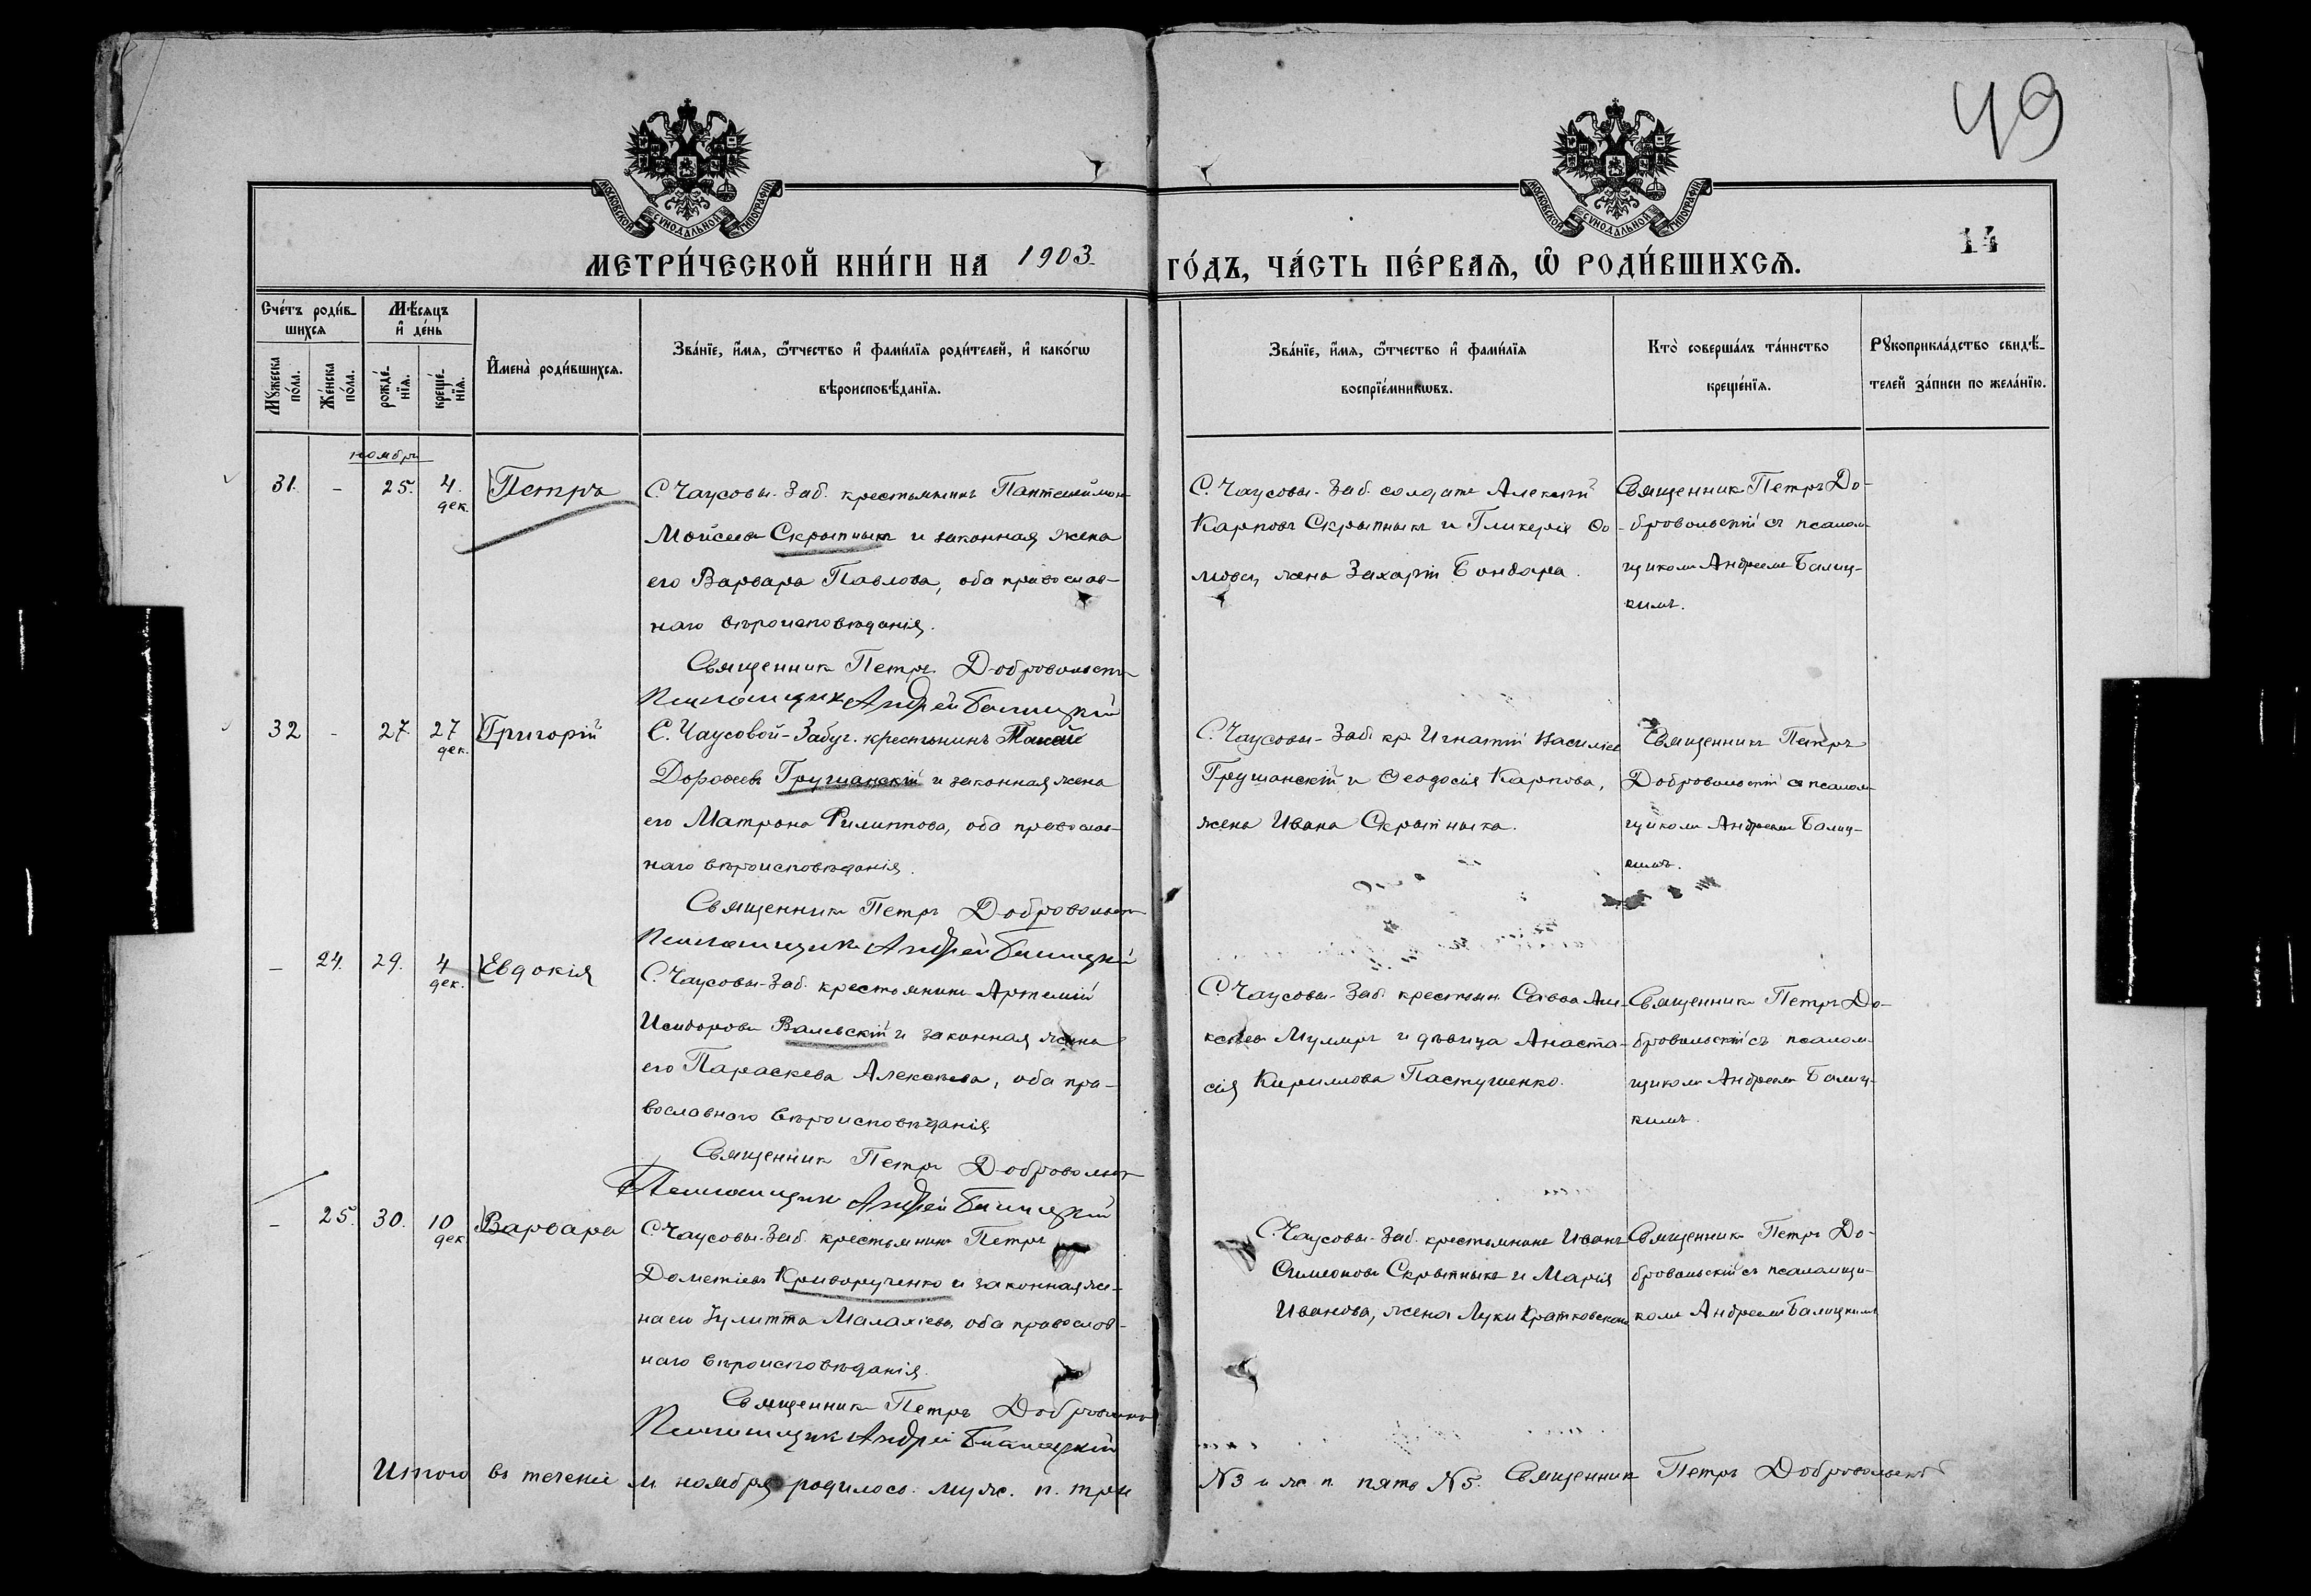 49
МОСКОВСКОЙ СѴНОДАЛЬНОЙ ТИПОГРАФІИ
МОСКОВСКОЙ СѴНОДАЛЬНОЙ ТИПОГРАФІИ
14
МЕТРИ́ЧЕСКОЙ КНИ́ГИ НА 1903 ГО́ДЪ, ЧА́СТЬ ПЕ́РВАѦ, Ѡ҆ РОДИ́ВШИХСѦ.
Сче́тъ роди́в-
шихсѧ
Мѣ́сѧцъ
и҆ де́нь
Мꙋ́жеска
по́ла.
Же́нска
по́ла.
рожде́-
нїѧ.
креще́-
нїѧ.
И҆мена̀ роди́вшихсѧ.
Зва́нїе, и҆́мѧ, ѻ҆́тчество и҆ фами́лїѧ роди́телей, и҆ како́гѡ
вѣроисповѣ́данїѧ.
Зва́нїе, и҆́мѧ, ѻ҆́тчество и҆ фами́лїѧ
воспрїе́мникѡвъ.
Кто̀ соверша́лъ та́инство
креще́нїѧ.
Рꙋкоприкла́дство свидѣ́-
телей за́писи по жела́нїю.
ноября
31. - 25. 4. дек. Петръ
С. Чаусовы-Заб. крестьянинъ Пантелеймон
Мойсеевъ Скрыпныкъ и законная жена
его Варвара Павлова, оба православ-
наго вѣроисповѣданія.
Священникъ Петръ Добровольскій
Псаломщикъ Андрей Балицкій
С. Чаусовы-Заб. солдатъ Алексѣй
Карповъ Скрыпныкъ и Гликерія Ѳо
мова, жена Захарія Бондаря.
Священникъ Петръ До-
бровольскій съ псалом-
щикомъ Андреемъ Балиц-
кимъ.
32 - 27. 27 дек. Григорій
С. Чаусовой-Забуг. крестьянинъ
Дороѳеевъ Грушанскій и законная жена
его Матрона Филиппова, оба православ-
наго вѣроисповѣданія.
Священникъ Петръ Добровольскій
Псаломщикъ Андрей Балицкій
С. Чаусовы-Заб. кр. Игнатій Васильев
Грушанскій и Ѳеодосія Карпова,
жена Ивана Скрыпныка.
Священникъ Петръ
Добровольскій съ псалом-
щикомъ Андреемъ Балиц-
кимъ.
- 24. 29. 4 дек. Евдокія
С. Чаусовы-Заб. крестьянинъ Артемій
Исидоровъ Валевскій и законная жена
его Параскева Алексѣева, оба пра-
вославнаго вѣроисповѣданія
Священникъ Петръ Добровольскій
Псаломщикъ Андрей Балицкій
С. Чаусовы-Заб. крестьян. Савва Але-
ксѣевъ Муляръ и дѣвица Анаста-
сія Кириллова Пастушенко.
Священникъ Петръ До-
бровольскій съ псалом-
щикомъ Андреемъ Балиц-
кимъ.
- 25. 30. 10 дек. Варвара
С. Чаусовы-Заб. крестьянинъ Петръ
Дометіевъ Криворученко и законная же-
на его Іулитта Малахіева, оба православ-
наго вѣроисповѣданія.
Священникъ Петръ Добровольскій
Псаломщикъ Андрей Балицкій
С. Чаусовы-Заб. крестьянинъ Иванъ
Симеоновъ Скрыпныкъ и Марія
Иванова, жена Луки Кратковскаго
Священникъ Петръ До-
бровольскій съ псаломщи-
комъ Андреемъ Балицкимъ
Итого въ теченіе м. ноября родилось муж. п. три
N3 и ж. п. пять N5. Священникъ Петръ Добровольскій